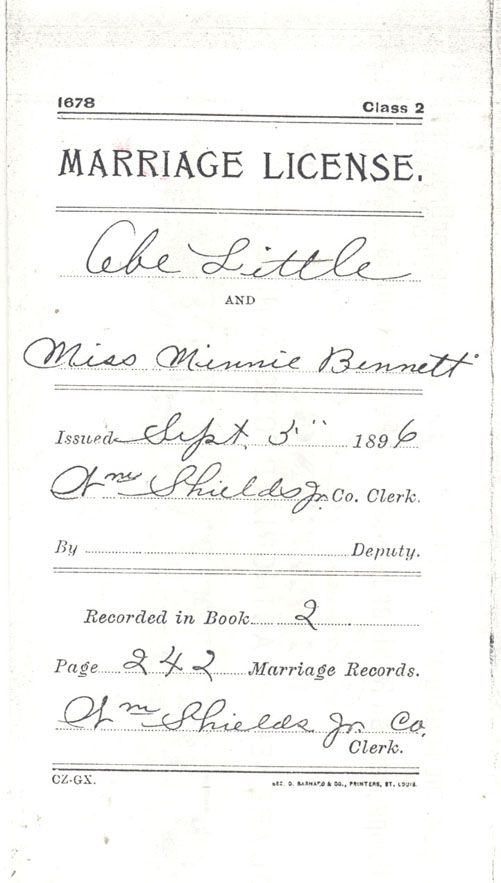 1678 Class 2
MARRIAGE LICENSE.
Abe Little
AND
Miss Minnie Bennett
Issued Sept. 3" 1896
Wm Shields Jr. Co. Clerk.
By Deputy.
Recorded in Book 2
Page 242 Marriage Records.
Wm Shields Jr. Co.
Clerk.
CZ-GX. GEO. D. BARNARD & CO., PRINTERS, ST. LOUIS.